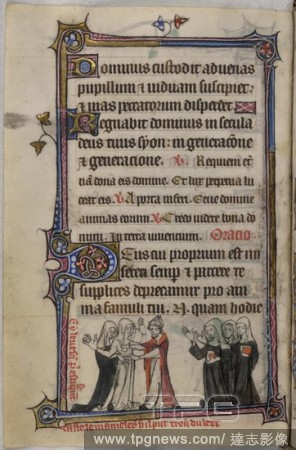 Dominus custodit aduenas
pupillum & uiduam suscipiet:
& uias peccatorum disperdet.
Regnabit dominus in secula
deus tuus syon: in generacõne
& generacione. Requiem et
nã dona eis domine. Et lux perpetua lu
ceat eis. A porta inferi. Erue domine
animas eorum. Credo uidere bona do
mini. In terra uiuentium. Oracio.
Deus cui proprium est mi
sereri semp & parcere te
suplices deprecamur pro ani
ma famuli tui. N. quam hodie
TPG
www.tpgnews.com / 達志影像